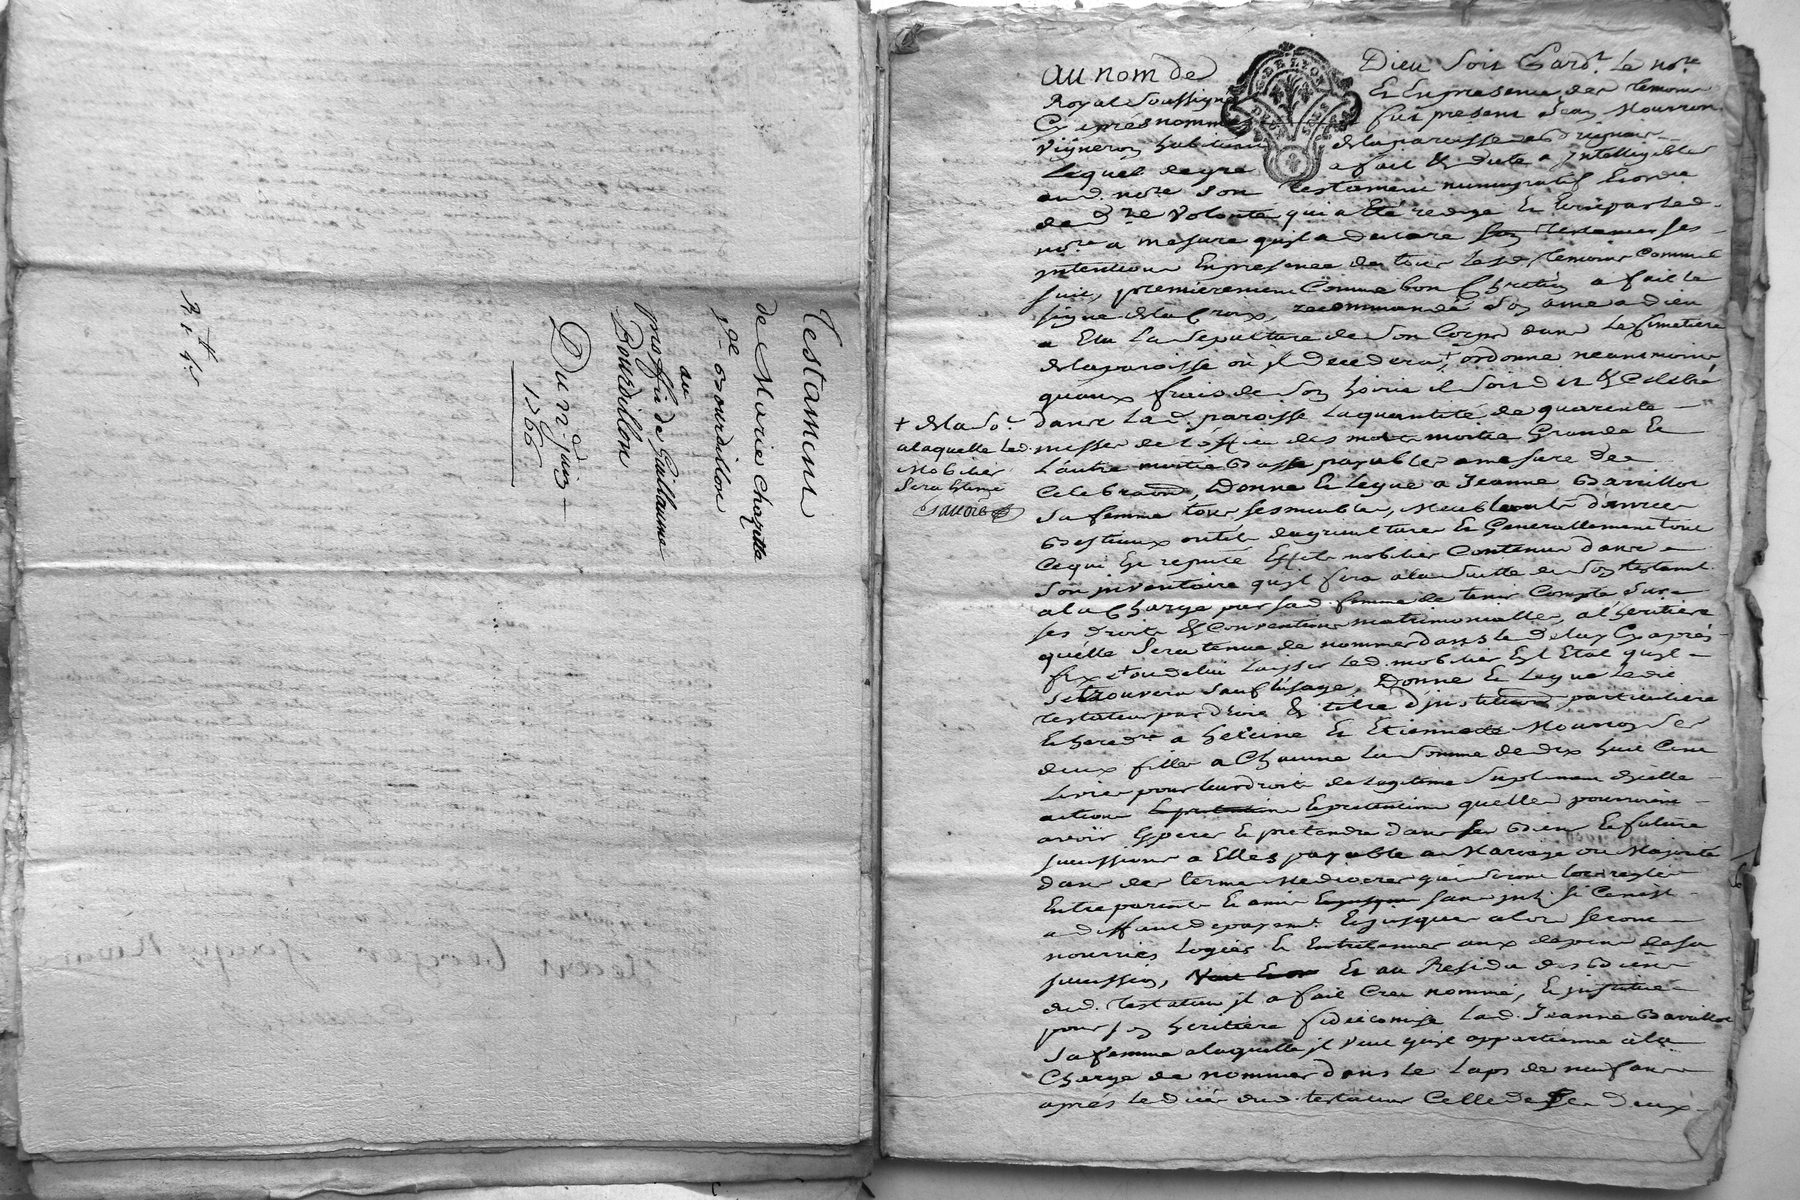 Testament
de Marie Chazette
Vᵉ Bourdillon
au
proffit de Guillaume
Bourdillon
Du n.d Juin
1766
G. DE LYON
DEUX SOLS
au nom de Dieu soit Gard.r Le no.re
Royal soussigné Et En presence des temoins
Cy aprés nommés fut present Jean Mourron
vigneron habitant de la paroisse de
Lequel de gré a fait & dicté a Intelligible
aud. no.re son testament nuncupatif Et ordre
de d.re volonté qui a Eté redigé Et Ecrit par led.
no.re a mesure qu'il a declaré son testament ses
intentions En presence de tous lesd. temoins Comme
suit, premierement Comme bon Chretien a fait le
signe de la Croix, recommandé son ame a dieu
a Elu La sepulture de son Corps dans Le simetiere
de la paroisse ou il decedera, ordonne neanmoins
quaux frais de son hoirie il soit dit & Celebré
dans La d. paroisse La quantité de quarente
messes de l'office des morts moitié Grande Et
L'autre moitié Basse payables a mesure de
Celebraon, Donne Et Legue a Jeanne Barillot
sa femme tous ses meubles, meublants denrées
Bestiaux outils dagriculture Et Generallement tout
Ce qui Est reputé Effets mobilier Contenus dans
son inventaire qu'il fera a la suitte de son testamt
a la Charge par sad. femme de tenir Compte sur
ses droits & Conventions matrimonialles, a l'heritiere
quélle sera tenue de nommer dans le delay Cy aprés
fixé + ou de lui Laisser Led. mobilier En l'Etat qu'il
se trouvera sauf l'usage, Donne Et Legue Ledit
testateur par droit & titre d'institution particuliere
Et heredre a heleine Et Etiennette Mourron ses
deux filles a Chacune La somme de dix huit Cent
Livres pour leur droits de Legitime supplement dicelle
actions Et pretentions Et pretentions quelles pourroient
avoir Esperer Et pretendre dans ses Biens Et future
succession a Elles payable a Mariage ou Majorité
dans des termes Mediocres qui seront tous reglés
Entre parents Et amis Enjusque sans int. si Ce n'est
a deffaut de payemt. Et jusques alors seront
nourries Logées Et Entretenues aux depens de sa
succession, Veut Et on Et au Residu des Biens
dud. testateur il a fait Crée nommé, Et institué
pour son heritiere fideicomise Lad. Jeanne Barillot
sa femme a laquelle il veut qu'il appartienne a la
Charge de nommer dans Le Laps de neuf ans
aprés Le deces dud. testateur Celle de ses deux
+ de la so.
a laquelle led.
mobilier
sera Estimé